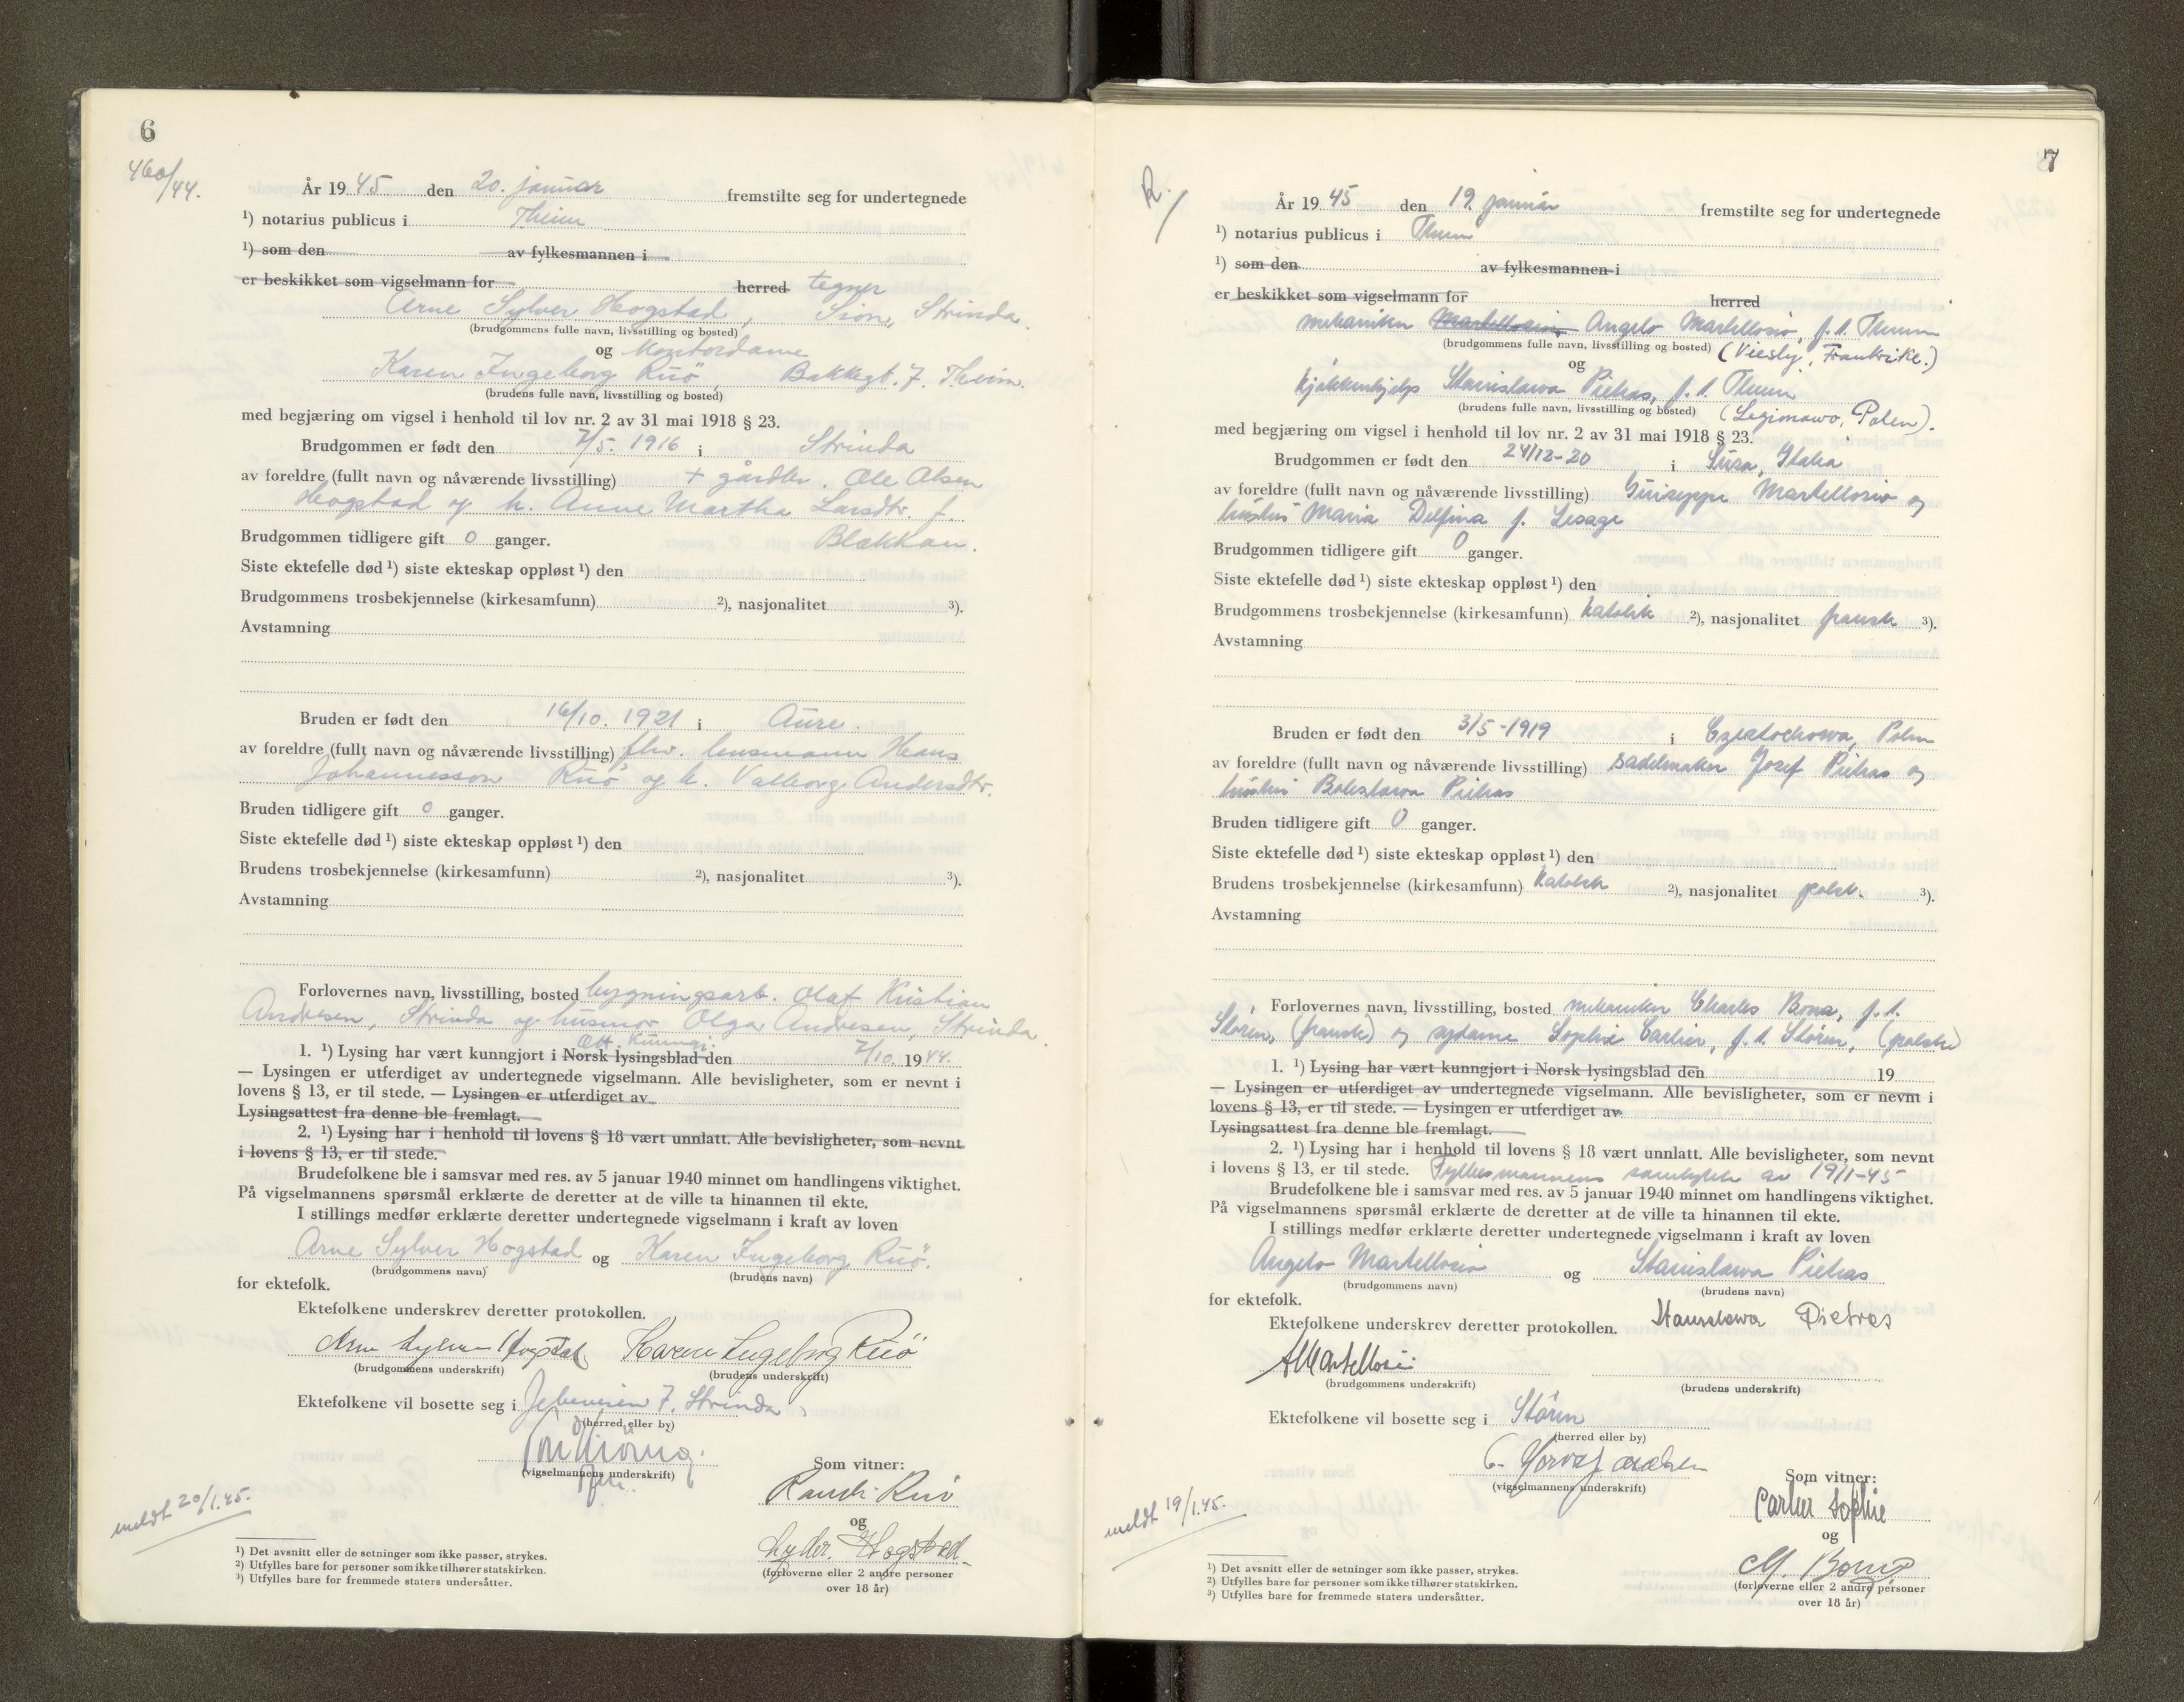 6
460/44.
År 1945 den 20. januar fremstilte seg for undertegnede
¹) notarius publicus i Theim
¹) som den av fylkesmannen i
er beskikket som vigselmann for herred tegner
Arne Sylver Hogstad, Sion, Strinda.
(brudgommens fulle navn, livsstilling og bosted)
og kontordame
Karen Ingeborg Ruö, Bakkegt. 7. Theim.
(brudens fulle navn, livsstilling og bosted)
med begjæring om vigsel i henhold til lov nr. 2 av 31 mai 1918 § 23.
Brudgommen er født den 7/5. 1916 i Strinda
av foreldre (fullt navn og nåværende livsstilling) + gårdbr. Ole Olsen
Hogstad og h. Anne Martha Larsdtr. f.
Brudgommen tidligere gift 0 ganger. Blækkan.
Siste ektefelle død ¹) siste ekteskap oppløst ¹) den
Brudgommens trosbekjennelse (kirkesamfunn) ²), nasjonalitet ³).
Avstamning
Bruden er født den 16/10. 1921 i Aure.
av foreldre (fullt navn og nåværende livsstilling) fhv. lensmann Hans
Johannesson Ruö og h. Valborg Andersdtr.
Bruden tidligere gift 0 ganger.
Siste ektefelle død ¹) siste ekteskap oppløst ¹) den
Brudens trosbekjennelse (kirkesamfunn) ²), nasjonalitet ³).
Avstamning
Forlovernes navn, livsstilling, bosted bygningsarb. Olaf Kristian
Andresen, Strinda og husmor Olga Andresen, Strinda.
Off. kunngj.
1. ¹) Lysing har vært kunngjort i Norsk lysingsblad den 7/10. 1944.
— Lysingen er utferdiget av undertegnede vigselmann. Alle bevisligheter, som er nevnt i
lovens § 13, er til stede. — Lysingen er utferdiget av
Lysingsattest fra denne ble fremlagt.
2. ¹) Lysing har i henhold til lovens § 18 vært unnlatt. Alle bevisligheter, som nevnt
i lovens § 13, er til stede.
Brudefolkene ble i samsvar med res. av 5 januar 1940 minnet om handlingens viktighet.
På vigselmannens spørsmål erklærte de deretter at de ville ta hinannen til ekte.
I stillings medfør erklærte deretter undertegnede vigselmann i kraft av loven
Arne Sylver Hogstad og Karen Ingeborg Ruö.
(brudgommens navn) (brudens navn)
for ektefolk.
Ektefolkene underskrev deretter protokollen.
Arne Sylver Hogstad Karen Ingeborg Ruö
(brudgommens underskrift) (brudens underskrift)
Ektefolkene vil bosette seg i 7. Strinda
(herred eller by)
(vigselmannens underskrift)
Som vitner:
Randi Ruö
og
Lyder Hogstad
(forloverne eller 2 andre personer
over 18 år)
meldt 20/1.45.
¹) Det avsnitt eller de setninger som ikke passer, strykes.
²) Utfylles bare for personer som ikke tilhører statskirken.
³) Utfylles bare for fremmede staters undersåtter.
7
R.
År 1945 den 19. januar fremstilte seg for undertegnede
¹) notarius publicus i Theim
¹) som den av fylkesmannen i
er beskikket som vigselmann for herred
mekaniker Martellosio Angelo Martellosio, f.t. Theim
(brudgommens fulle navn, livsstilling og bosted) (Viesly, Frankrike.)
og
kjøkkenhjelp Stanislawa Pietras, f.t. Theim
(brudens fulle navn, livsstilling og bosted) (Legionawo, Polen).
med begjæring om vigsel i henhold til lov nr. 2 av 31 mai 1918 § 23.
Brudgommen er født den 24/12-20 i Susa, Italia
av foreldre (fullt navn og nåværende livsstilling) Guiseppe Martellosio og
hustru Maria Delfina f. Lesage
Brudgommen tidligere gift 0 ganger.
Siste ektefelle død ¹) siste ekteskap oppløst ¹) den
Brudgommens trosbekjennelse (kirkesamfunn) katolsk ²), nasjonalitet fransk ³).
Avstamning
Bruden er født den 3/5-1919 i Czestochowa, Polen
av foreldre (fullt navn og nåværende livsstilling) sadelmaker Josef Pietras og
hustru Boleslawa Pietras
Bruden tidligere gift 0 ganger.
Siste ektefelle død ¹) siste ekteskap oppløst ¹) den
Brudens trosbekjennelse (kirkesamfunn) katolsk ²), nasjonalitet polsk. ³).
Avstamning
Forlovernes navn, livsstilling, bosted mekaniker Charles Bona, f.t.
Støren, (fransk) og sydame Sophie Carlier, f.t. Støren, (polsk)
1. ¹) Lysing har vært kunngjort i Norsk lysingsblad den 19
— Lysingen er utferdiget av undertegnede vigselmann. Alle bevisligheter, som er nevnt i
lovens § 13, er til stede. — Lysingen er utferdiget av
Lysingsattest fra denne ble fremlagt.
2. ¹) Lysing har i henhold til lovens § 18 vært unnlatt. Alle bevisligheter, som nevnt
i lovens § 13, er til stede. Fylkesmannens samtykke av 19/1-45
Brudefolkene ble i samsvar med res. av 5 januar 1940 minnet om handlingens viktighet.
På vigselmannens spørsmål erklærte de deretter at de ville ta hinannen til ekte.
I stillings medfør erklærte deretter undertegnede vigselmann i kraft av loven
Angelo Martellosio og Stanislawa Pietras
(brudgommens navn) (brudens navn)
for ektefolk.
Ektefolkene underskrev deretter protokollen. Stanislawa Pietras
AMartellosio
(brudgommens underskrift) (brudens underskrift)
Ektefolkene vil bosette seg i Støren
(herred eller by)
(vigselmannens underskrift)
Som vitner:
Carlier Sophie
og
(forloverne eller 2 andre personer
over 18 år)
meldt 19/1.45.
¹) Det avsnitt eller de setninger som ikke passer, strykes.
²) Utfylles bare for personer som ikke tilhører statskirken.
³) Utfylles bare for fremmede staters undersåtter.